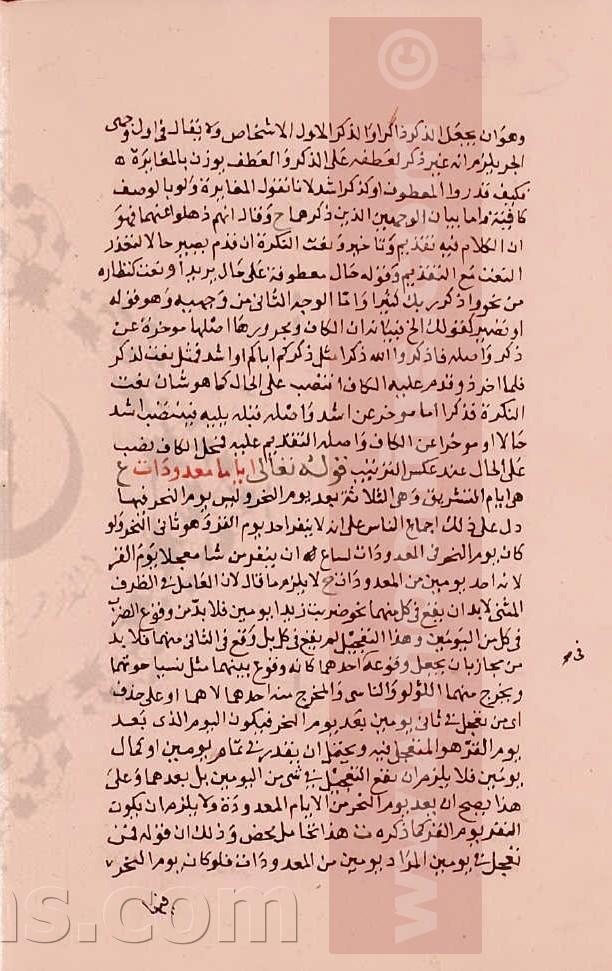 وهو ان يجعل الذكر ذاكرا والذكر الاول الاشخاص ولا يقال في اول وجهى
الجر يلزم انه غير ذكر لعطفه على الذكر والعطف يوزن بالمغايرة
فكيف قدروا المعطوف او كذكر اشد لانا نقول المغايرة ولو بالوصف
كافية واما بيان الوجهين الذين ذكرهما ح وقال انهم ذهلوا عنهما فهو
ان الكلام فيه تقديم وتاخير ونعت النكرة ان قدم يصير حالا لتعذر
النعت مع التقديم وقوله حال معطوفة على حال يريد او نعت كنظاره
من نحو واذكر ربك كثيرا واما الوجه الثاني من وجهيه وهو قوله
او نصير كقولك الخ فبيانه ان الكاف ومجرورها اصلها موخرة عن
ذكر واصله فاذكروا الله ذكرا مثل ذكركم اباكم او اشد فمثل نعت لذكر
فلما اخر ذ وقدم عليه الكاف انتصب على الحال كما هو شان نعت
النكرة قد ذكرا اما موخر عن اشد واصله قبله يليه فينتصب اشد
حالا او موخرا عن الكاف واصله التقديم عليه فمحل الكاف نصب
على الحال عند عكس الترتيب قوله تعالى اياما معدودات ع
هي ايام التشريق وهي الثلاثة بعد يوم النحر وليس يوم النحر فيها
دل على ذلك اجماع الناس على انه لا ينفر احد يوم القر وهو ثاني النحر ولو
كان يوم النحر في المعدودات لساغ له ان ينفر من شا متعجلا يوم القر
لانه احد يومين من المعدودات ح لا يلزم ما قال لان العامل في الظرف
المثنى لابد ان يقع في كل منهما نحو ضربت زيدا يومين فلا بد من وقوع الضرب
في كل من اليومين وهذا التعجيل لم يقع في كل بل وقع في الثاني منهما فلا بد
من مجاز بان يجعل وقوعه في احدهما كانه وقوع بينهما مثل نسيا حوتهما
ويخرج منهما اللؤلؤ والناسي والمخرج منه احدهما لا هما او على حذف
اى من تعجل في ثاني يومين بعد يوم النحر فيكون اليوم الذى بعد
يوم القر هو المتعجل فيه ويحتمل ان يقدر في تمام يومين او كمال
يومين فلا يلزم ان يقع التعجيل في شى من اليومين بل بعدهما وعلى
هذا يصح ان يعد يوم النحر من الايام المعدودة ولا يلزم ان يكون
النفر يوم القر كما ذكره ت هذا تحامل محض وذلك ان قوله فمن
تعجل في يومين المراد يومين من المعدودات فلو كان يوم النحر
www.
ns.com
©